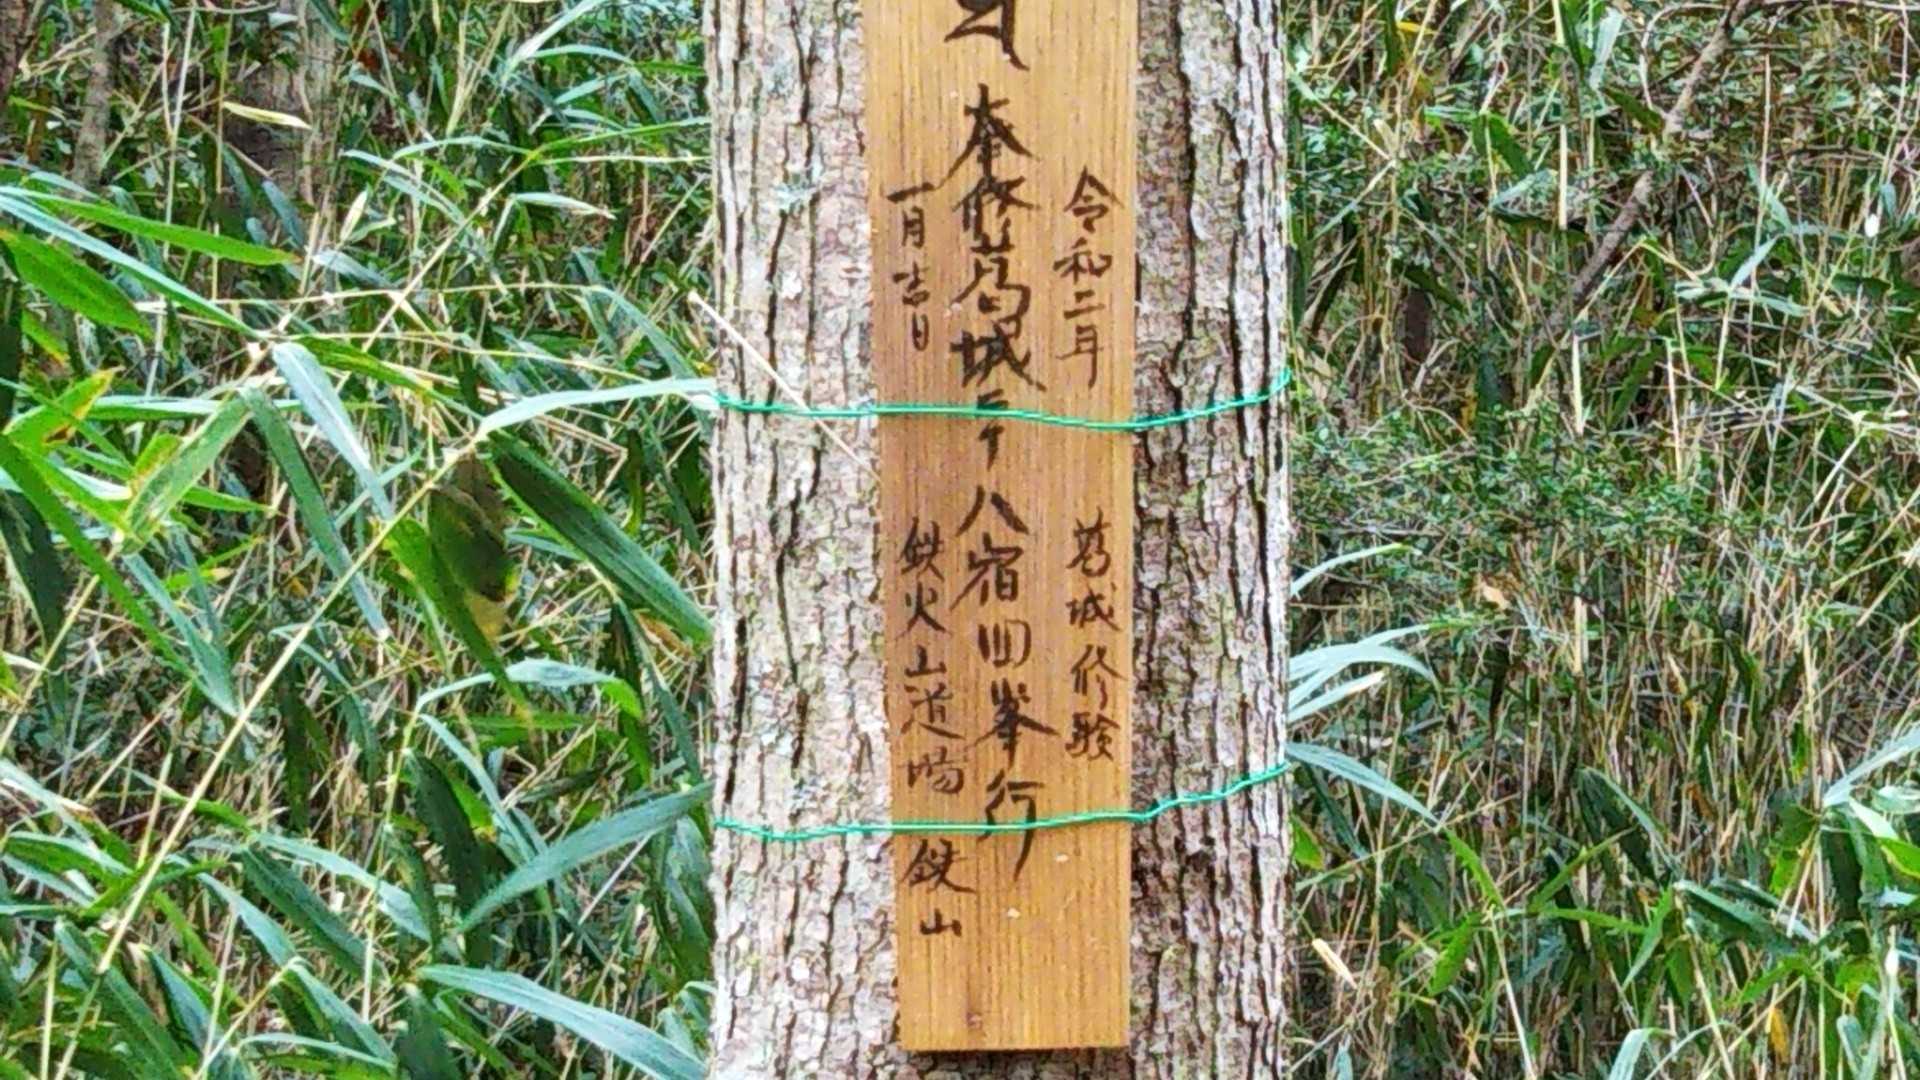 令和二年 葛城修験
奉修葛城二十八宿回峯行
一月吉日 鉄火山道場 鉄山